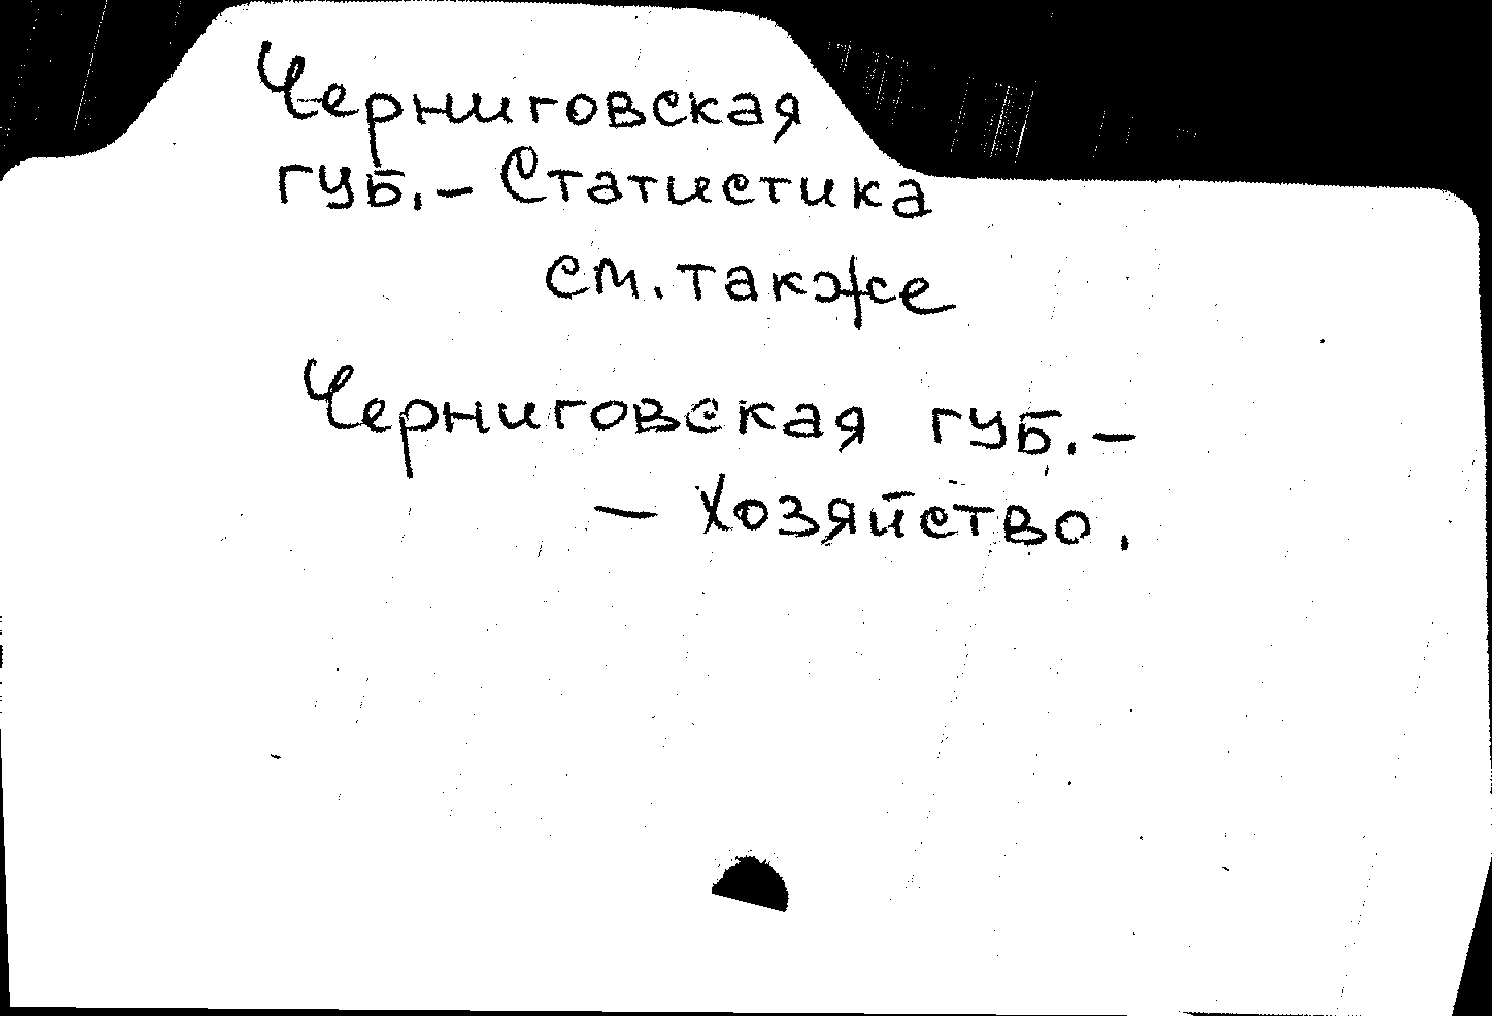 Черниговская
губ.- Статистика
см. также
Черниговская губ.-
- Хозяйство.